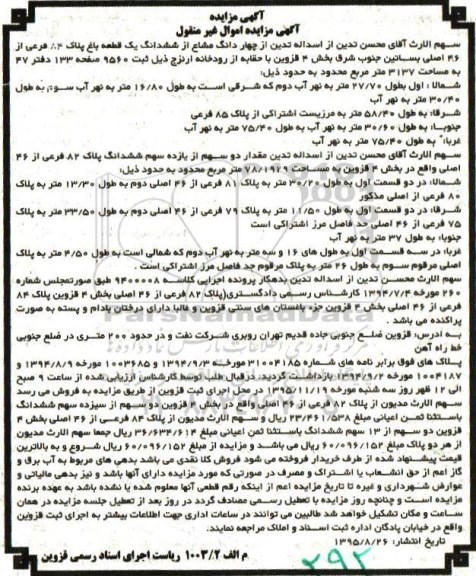 آگهی مزایده
آگهی مزایده اموال غیر منقول
سهم الارث آقای محسن تدین از اسداله تدین از چهار دانگ مشاع از ششدانگ یک قطعه باغ پلاک ۸۴ فرعی از
۴۶ اصلی بساتین جنوب شرق بخش ۴ قزوین با حقابه از رودخانه ارنزج ذیل ثبت ۹۵۶۰ صفحه ۱۳۳ دفتر ۴۷
به مساحت ۳۱۳۷ متر مربع محدود به حدود ذیل:
شمالا : اول بطول ۲۷/۷۰ متر به نهر آب دوم که شرقی است به طول ۱۶/۸۰ متر به نهر آب سوم به طول
۳۰/۴۰ متر به نهر آب
شرقا: به طول ۵۸/۴۰ متر به مرزیست اشتراکی از پلاک ۸۵ فرعی
جنوبا: به طول ۳۰/۶۰ متر به نهر آب به طول ۷۵/۴۰ متر به نهر آب
غربا: به طول ۷۵/۴۰ متر به نهر آب
سهم الارث آقای محسن تدین از اسداله تدین مقدار دو سهم از یازده سهم ششدانگ پلاک ۸۲ فرعی از ۴۶
اصلی واقع در بخش ۴ قزوین به مساحت ۷۸/۱۹۲۹ متر مربع محدود به حدود ذیل:
شمالا: در دو قسمت اول به طول ۳۰/۲۰ متر به پلاک ۸۱ فرعی از ۴۶ اصلی دوم به طول ۱۳/۳۰ متر به پلاک
۸۰ فرعی از اصلی مذکور
شرقا: در دو قسمت اول به طول ۱۱/۵۰ متر به پلاک ۷۹ فرعی از ۴۶ اصلی دوم به طول ۳۳/۵۰ متر به پلاک
۷۵ فرعی از ۴۶ اصلی حد فاصل مرز اشتراکی است
جنوبا: به طول ۳۷ متر به نهر آب
غربا: در سه قسمت: اول به طول های ۱۶ و سه متر به نهر آب دوم که شمالی است به طول ۴/۵۰ متر به پلاک
اصلی مرقوم سوم به طول ۲۶ متر به پلاک مرقوم حد فاصل مرز اشتراکی است .
سهم الارث محسن تدین از اسداله تدین بدهکار پرونده اجرایی کلاسه ۹۴۰۰۰۰۸ طبق صورتمجلس شماره
۲۶۰ مورخه ۱۳۹۴/۷/۴ کارشناس رسمی دادگستری(پلاک ۸۲ فرعی از ۴۶ اصلی بخش ۴ قزوین پلاک ۸۴
فرعی از ۴۶ اصلی بخش ۴ قزوین جزء باغستان های سنتی قزوین و غالبا دارای درختان بادام و پسته به صورت
پراکنده می باشد .
به آدرس: قزوین ضلع جنوبی جاده قدیم تهران روبری شرکت نفت و در حدود ۲۰۰ متری در ضلع جنوبی
خط راه آهن
پلاک های فوق برابر نامه های شماره ۳۱۰۰۴۱۸۵ مورخه ۱۳۹۴/۹/۳ و ۱۰۰۳۴۸۵ مورخه ۱۳۹۴/۸/۹ و
۱۰۰۴۱۸۷ مورخه بازداشت گردید. در قبال طلب توسط کارشناس ارزیابی شده از ساعت ۹ صبح
الی ۱۲ ظهر روز سه شنبه مورخه ۱۳۹۵/۱۱/۱۹ در محل اجرای ثبت قزوین از طریق مزایده به فروش می رسد
سهم الارث مدیون از پلاک ۸۲ فرعی از ۴۶ اصلی واقع در بخش ۴ قزوین دو سهم از سیزده سهم ششدانگ
باستثنا ثمن اعیانی مبلغ ۲۳/۴۶۱/۵۳۸ ریال و سهم الارث مدیون از پلاک ۸۴ فرعی از ۴۶ اصلی بخش ۴
قزوین دو سهم از ۱۳ سهم ششدانگ باستثنا ثمن اعیانی مبلغ ۳۶/۶۳۴/۶۱۴ ریال جمعا سهم الارث مدیون
از هر دو پلاک مبلغ ۶۰/۰۹۶/۱۵۲ ریال می باشد و مزایده از مبلغ ۶۰/۰۹۶/۱۵۲ ریال شروع و به بالاترین
قیمت پیشنهاد شده از طرف خریدار فروخته می شود فروش کلا نقدی می باشد بدهی های مربوط به آب برق و
گاز اعم از حق انشعاب یا اشتراک و مصرف در صورتی که مورد مزایده دارای آنها باشد و نیز بدهی مالیاتی و
عوارض شهرداری و غیره تا تاریخ مزایده اعم از اینکه رقم قطعی آنها معلوم شده یا نشده باشد به عهده برنده
مزایده است و چنانچه روز مزایده با تعطیل رسمی مصادف گردد در روز بعد از تعطیل جلسه مزایده در همان
ساعت و مکان تشکیل خواهد شد طالبین می توانند در ساعات اداری جهت اطلاعات بیشتر به اجرای ثبت قزوین
واقع در خیابان پادگان اداره ثبت اسناد و املاک مراجعه نمایند.
تاریخ انتشار: ۱۳۹۵/۸/۲۶
م الف ۱۰۰۳/۲ ریاست اجرای اسناد رسمی قزوین
۲۹۲